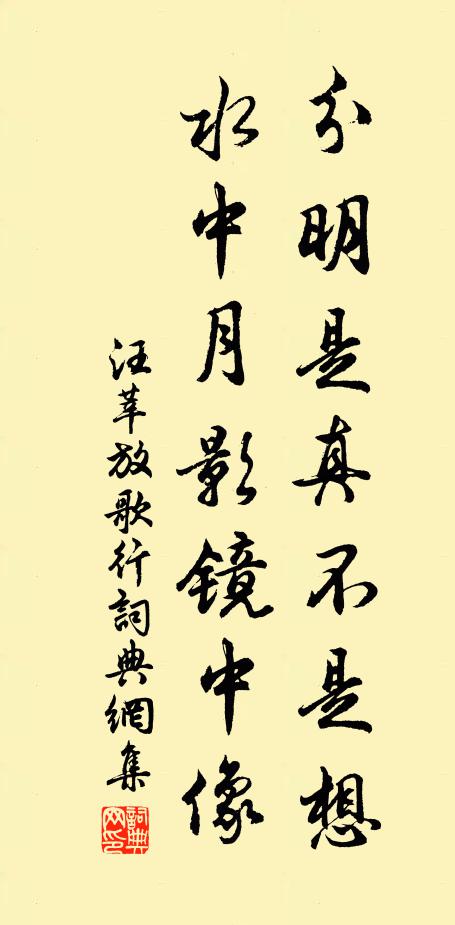 分明是真不是想
水中月影鏡中像
汪莘放歌行詞典網集
詞典網印